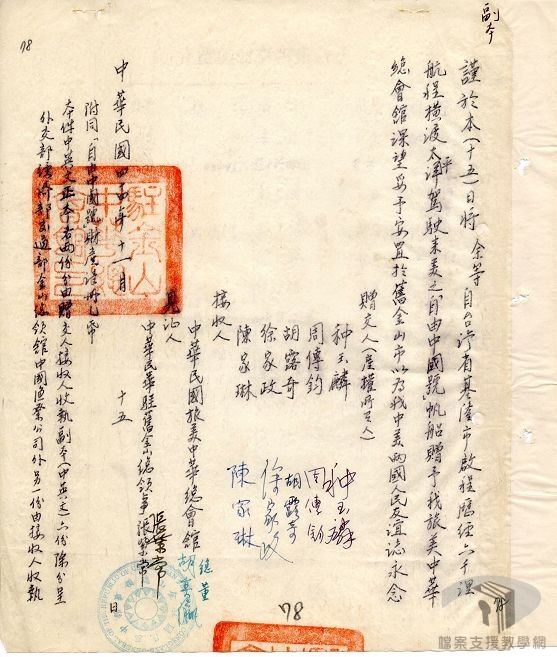 副本
謹於本(十五)日將余等自台灣省基隆市啟程歷經六千浬
航程橫渡太平洋駕駛來美之自由中國號帆船贈予我旅美中華
總會館深望妥予安置於舊金山市以為我中美兩國人民友誼誌永念
贈交人(產權所有人)
鍾玉麟
周傳鈞
胡露奇
徐家政
陳家琳
鍾玉麟
周傳鈞
胡露奇
徐家政
陳家琳
接收人
中華民國旅美中華總會館
總董
見証人
中華民國駐舊金山總領事張紫常
張紫常
中華民國四十四年十一月十五日
附同「自由中國號財產清冊」乙帋
本件中英文正本各兩份分由贈交人接收人收執副本(中英文)六份除分呈
外交部經濟部交通部金山總領館中國漁業公司外另一份由接收人收執
78
78
檔案支援教學網